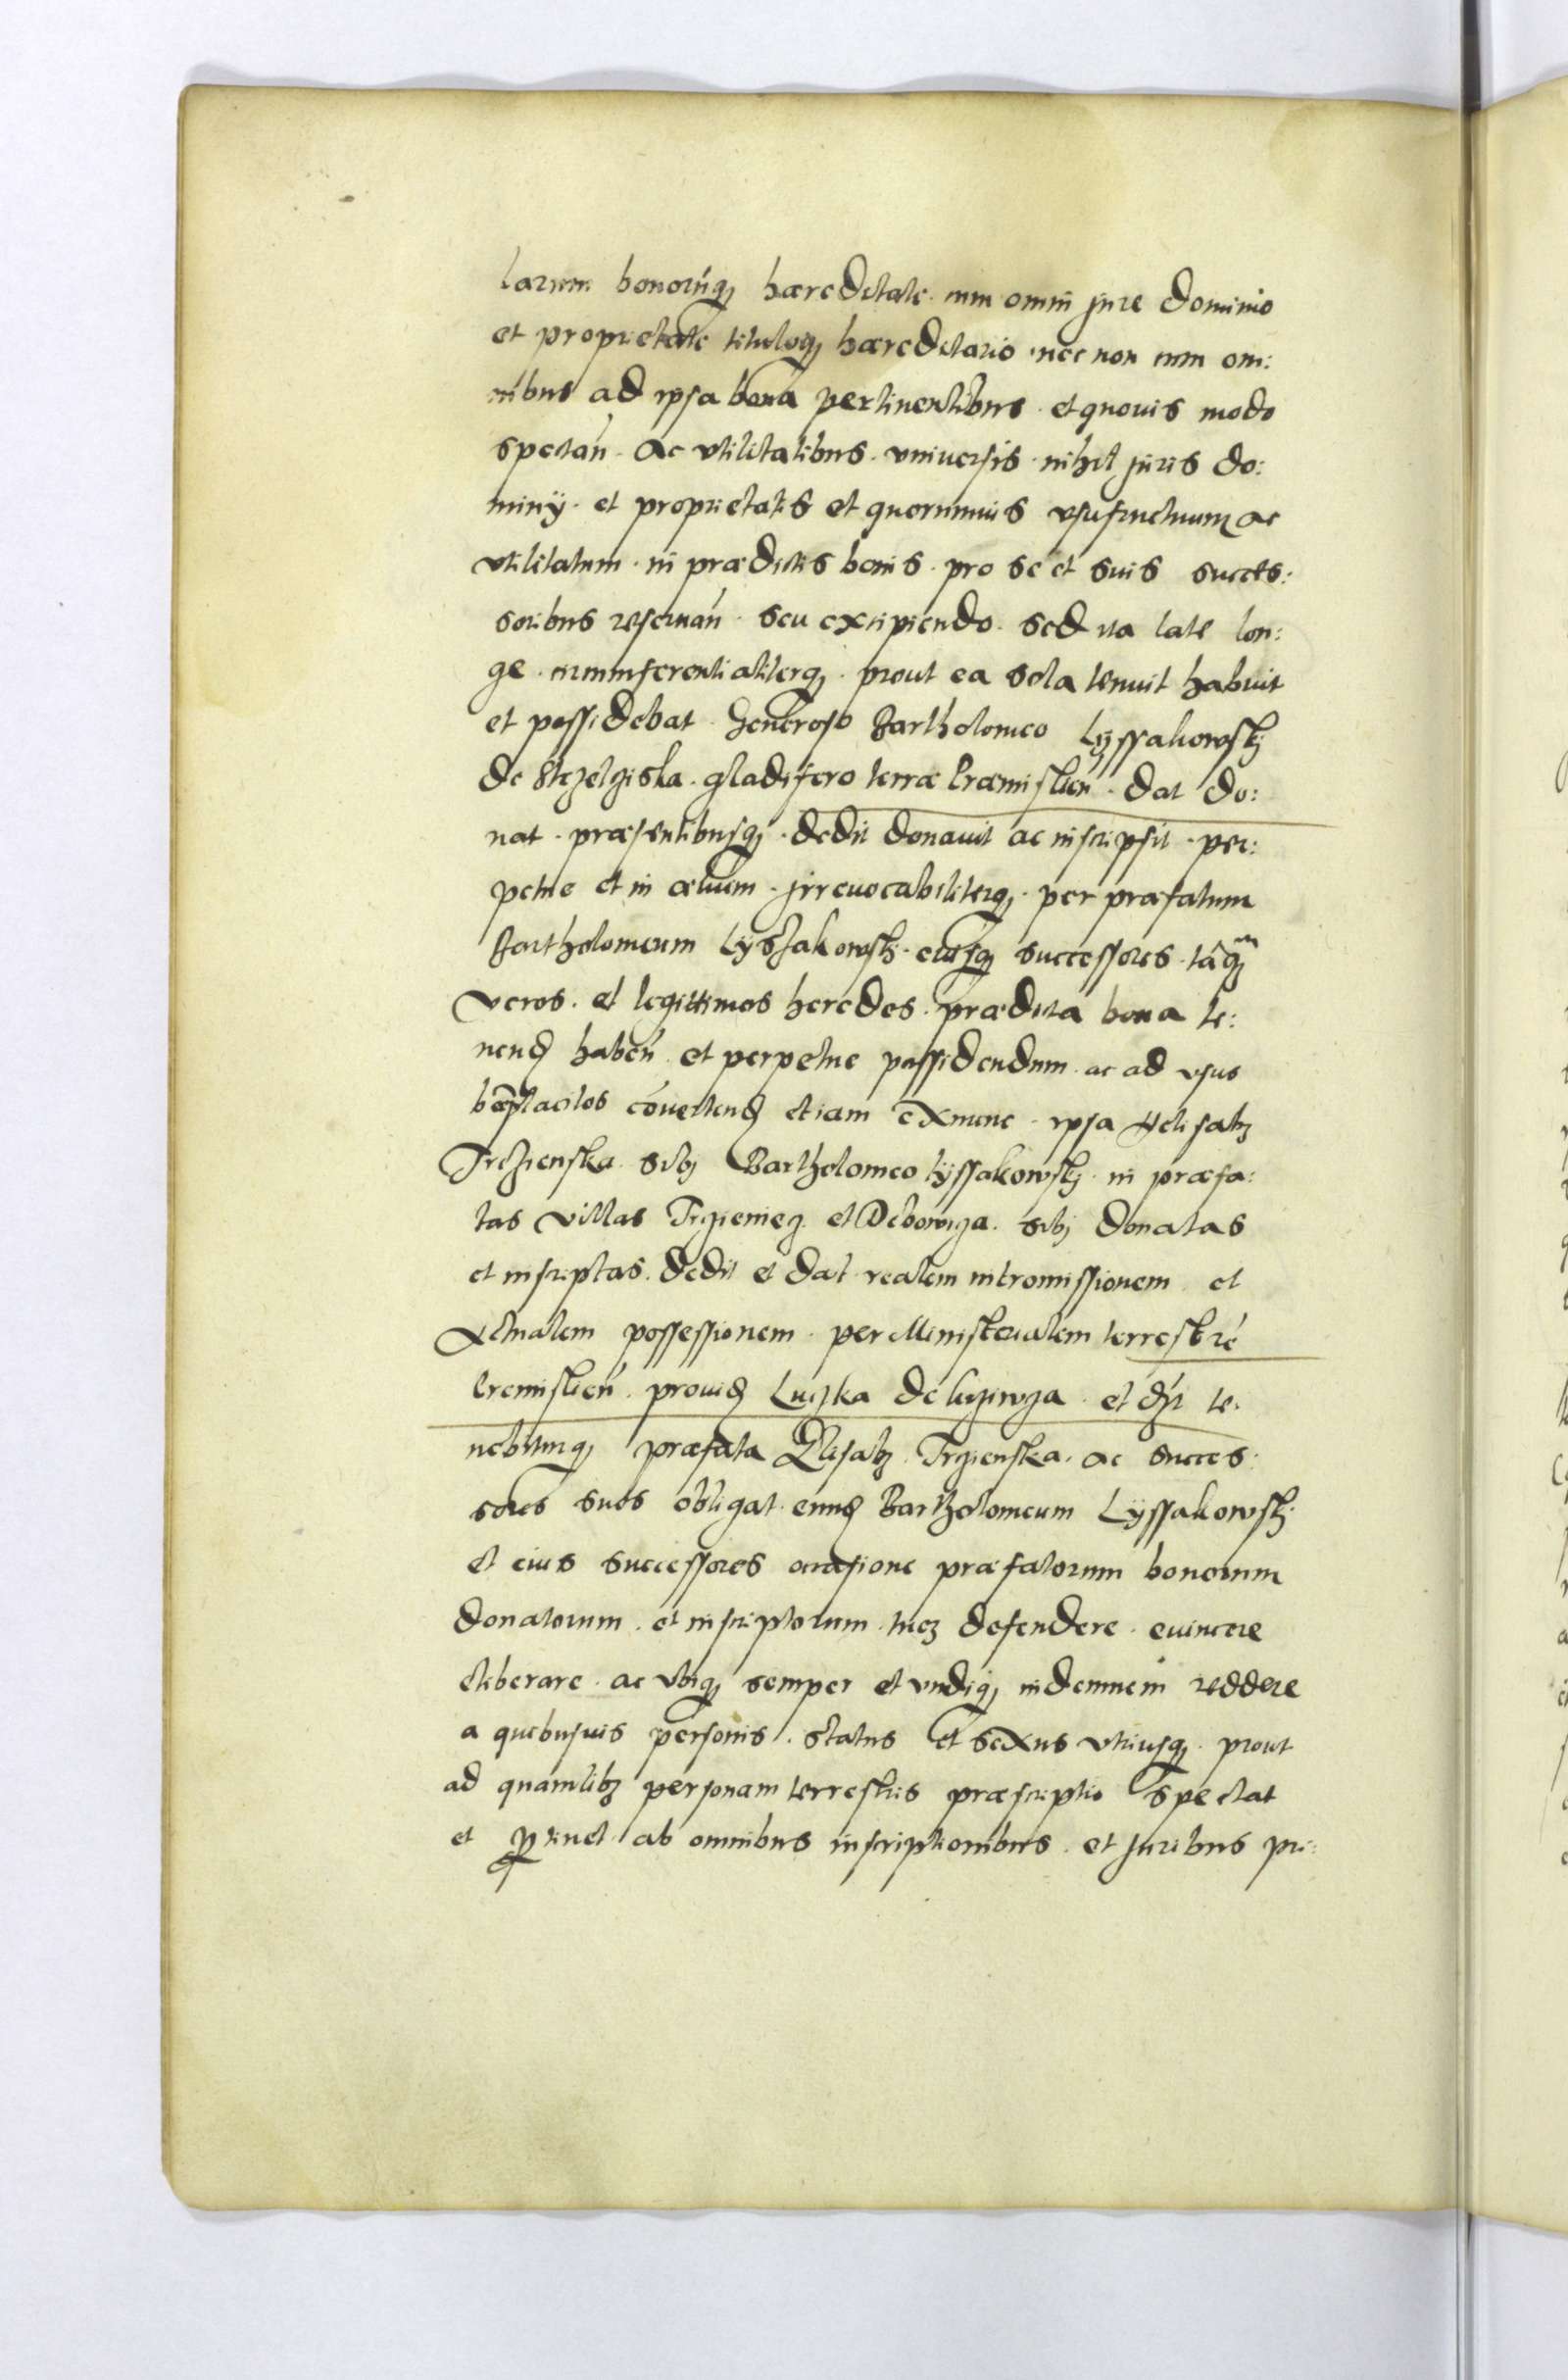 larum bonorúq₃ hæreditate cum omni jure Dominio
et proprietate tituloq₃ hæreditario nec non cum om:
nibus ad ipsa bona pertinentibus et quouis modo
spectań. Ac vtilitatibus vniuersis nihil juris do:
minÿ et proprietatis et quorumuis vsufructuum ac
vtilitatum in prædictis bonis pro se et suis succes:
soribus reseruań seu excipiendo. sed ita late lon:
ge circumferentialiterq₃ prout ea sola tenuit habuit
et possidebat Generoso Bartholomeo Lyssakowskj
de gladifero terræ Præmislień. dat do:
nat præsentibusq₃ dedit donauit ac inscripsit per:
petue et in æuum jrreuocabiliterq₃ per præfatum
Bartholomeum Lyssakowskj eiusq₃ successores tâq₃
veros et legittimos heredes prædicta bona te:
nend haberń et perpetue possidendum ac ad vsus
bñplacitos cóuertend etiam exnunc ipsa Helisab₃
Trzienska sibj Bartholomeo lyssakowskj in præfa:
tas villas Trzienieg et Debowiga sibj donatas
et inscriptas dedit et dat realem intromissionem et
Actualem possessionem per Ministerialem terrestré
Premislień prouid Luczka de et dȝ te:
nebiturq₃ præfata Elisab₃ Trzienska ac succes:
sores suos obligat eund Bartholomeum Lyssakowskj
et eius successores occasione præfatorum bonorum
donatorum et inscriptorum tuerj defendere euincere
eliberare ac vbiq₃ semper et vndiq₃ indemnem reddere
a quibusuis personis status et sexus vtriusq₃ prout
ad quamlib₃ personam terrestris præscriptio spectat
et ꝑtinet ab omnibus inscriptionibus et juribus pri: